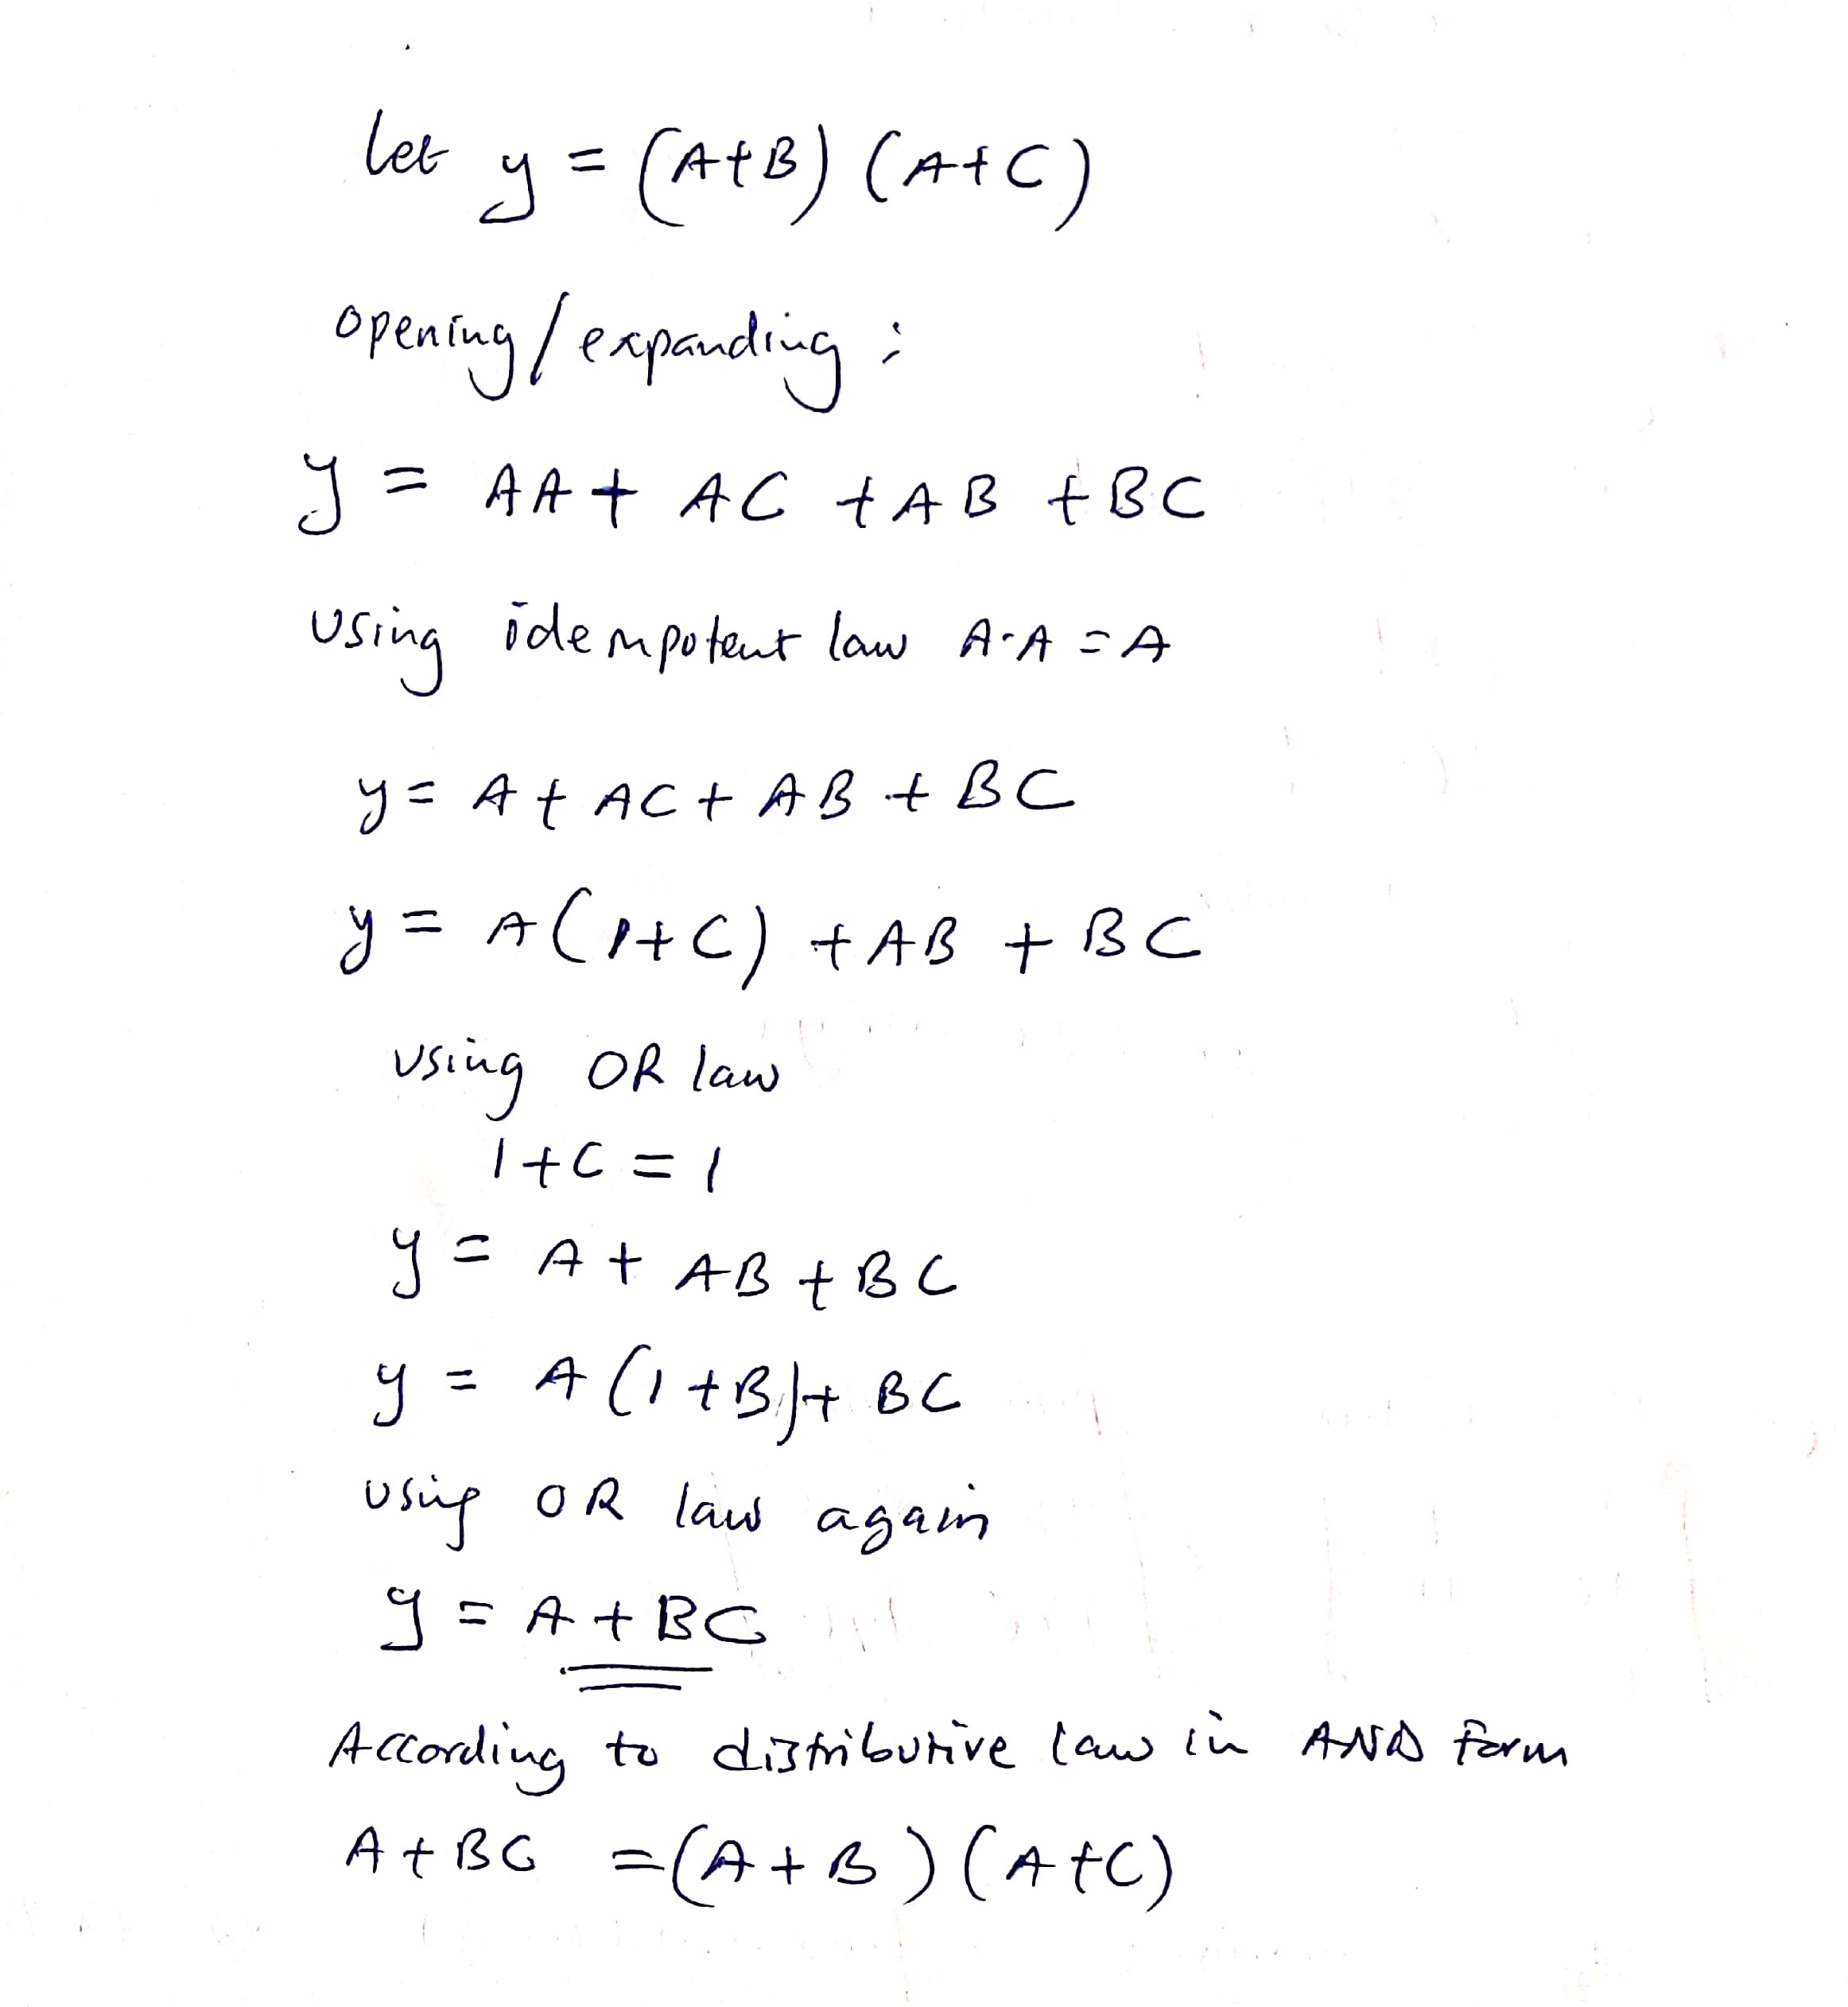 let y = (A+B) (A+C)
opening/expanding :
y = AA + AC + AB + BC
Using idempotent law A·A = A
y = A + AC + AB + BC
y = A(1+C) + AB + BC
using OR law
1+C = 1
y = A + AB + BC
y = A(1+B) + BC
Using OR law again
y = A + BC
According to distributive law in AND form
A + BC = (A+B) (A+C)